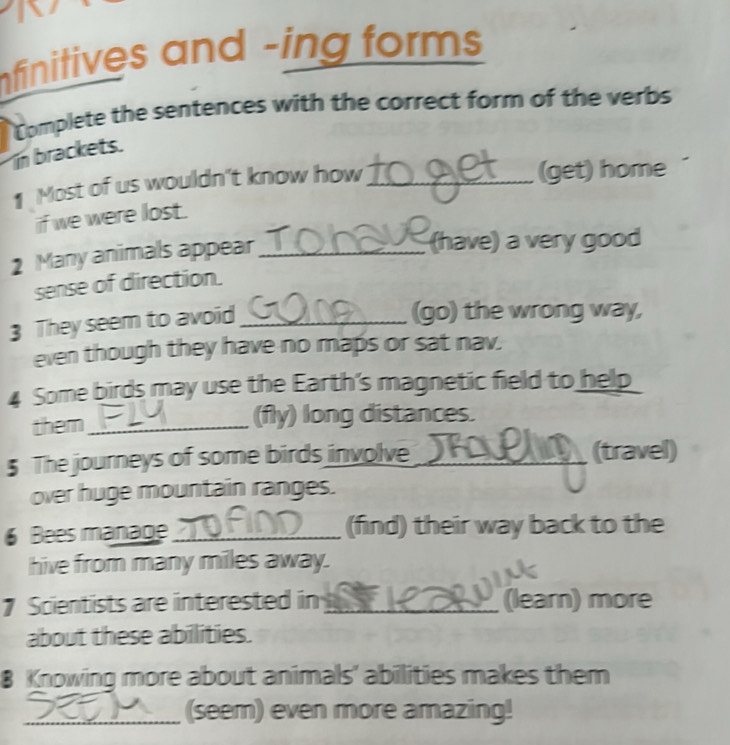 nfinitives and -ing forms
Complete the sentences with the correct form of the verbs
in brackets.
1 Most of us wouldn't know how to get (get) home
if we were lost.
2 Many animals appear To have (have) a very good
sense of direction.
3 They seem to avoid Going (go) the wrong way,
even though they have no maps or sat nav.
4 Some birds may use the Earth's magnetic field to help
them FLY (fly) long distances.
5 The journeys of some birds involve Traveling (travel)
over huge mountain ranges.
6 Bees manage TO FIND (find) their way back to the
hive from many miles away.
7 Scientists are interested in learning (learn) more
about these abilities.
8 Knowing more about animals' abilities makes them
SEEM (seem) even more amazing!